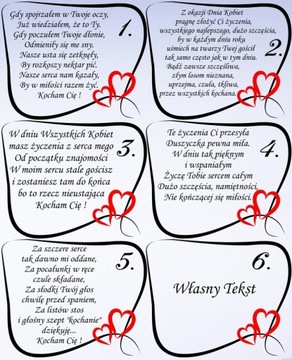 Gdy spojrzałem w Twoje oczy,
Już wiedziałem, że to Ty.
Gdy poczułem Twoje dłonie,
Odmieniły się me sny.
Nasze usta się zetknęły,
By rozkoszy nektar pić.
Nasze serca nam kazały,
By w miłości razem żyć.
Kocham Cię !
1.
Z okazji Dnia Kobiet
pragnę złożyć Ci życzenia,
wszystkiego najlepszego, dużo szczęścia,
by w każdym dniu roku
uśmiech na twarzy Twej gościł
tak samo często jak w tym dniu.
Bądź zawsze szczęśliwa,
złym losem nieznana,
uprzejma, czuła, tkliwa,
przez wszystkich kochana.
2.
W dniu Wszystkich Kobiet
masz życzenia z serca mego
Od początku znajomości
W moim sercu stale gościsz
i zostaniesz tam do końca
bo to rzecz nieustająca
Kocham Cię !
3.
Te życzenia Ci przesyła
Duszyczka pewna miła.
W dniu tak pięknym
i wspaniałym
Życzę Tobie sercem całym
Dużo szczęścia, namiętności,
Nie kończącej się miłości.
4.
Za szczere serce
tak dawno mi oddane,
Za pocałunki w ręce
czule składane,
Za słodki Twój głos
chwilę przed spaniem,
Za listów stos
i głośny szept "kochanie"
dziękuję...
Kocham Cię !
5.
6.
Własny Tekst